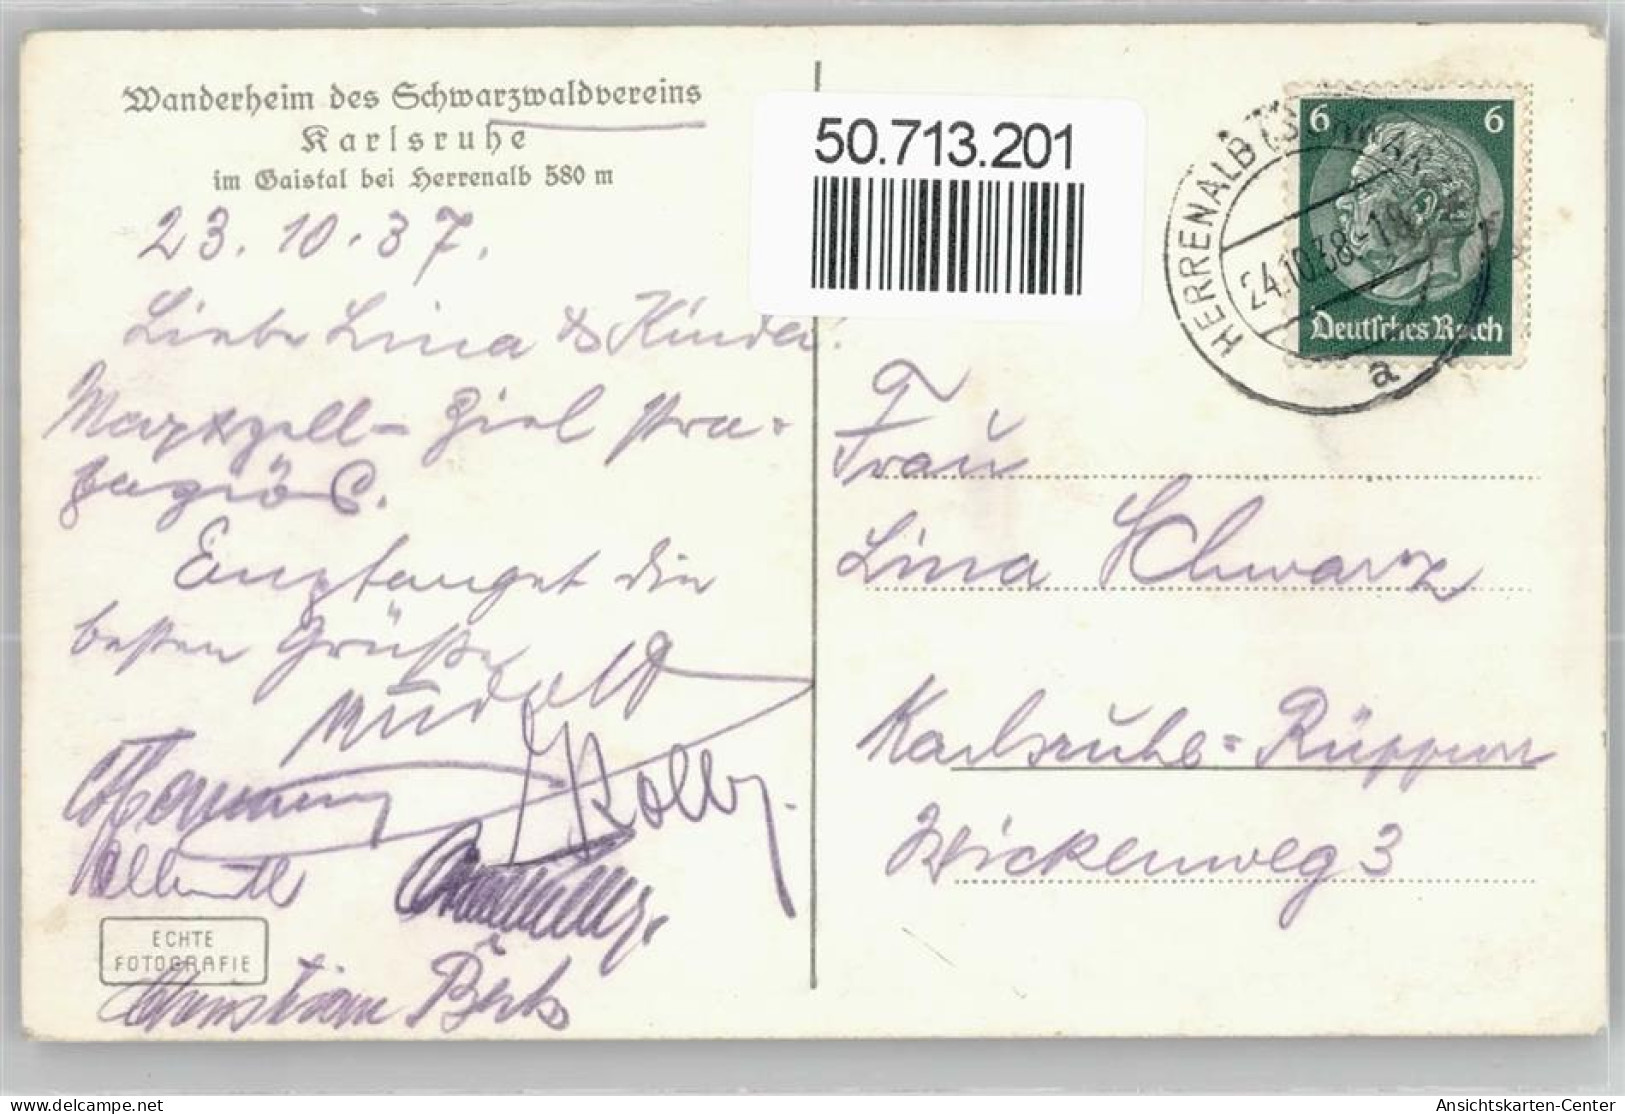 Wanderheim des Schwarzwaldvereins
Karlsruhe
im Gaistal bei Herrenalb 580 m
23. 10. 37.
Liebe Lina & Kinder!
Marxzell - Ziel
Empfanget die
besten Grüße
Rudolf
Hermann
Kolb
Christian
ECHTE
FOTOGRAFIE
50.713.201
HERRENALB (SCHWARZW
24.10.38.-18
a
6 6
Deutsches Reich
Frau
Lina Schwarz
Karlsruhe-Rüppurr
Wickenweg 3
delcampe.net
the_collector
Ansichtskarten-Center